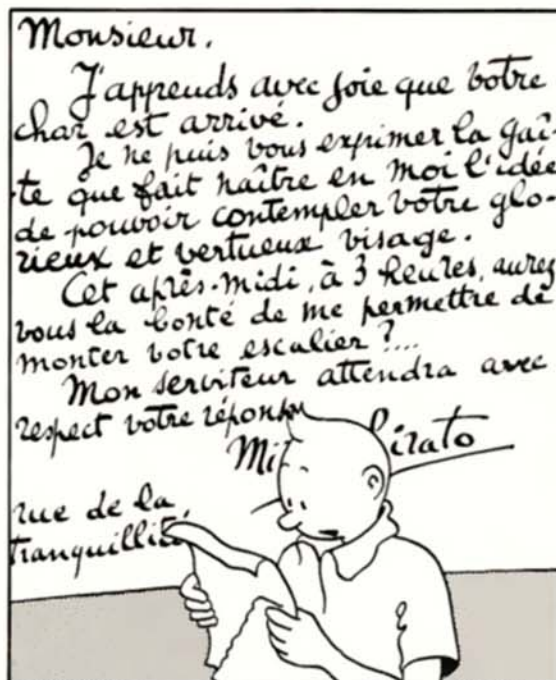 Monsieur.
J'apprends avec joie que votre
char est arrivé.
Je ne puis vous exprimer la gaî-
te que fait naître en moi l'idée
de pouvoir contempler votre glo-
rieux et vertueux visage.
Cet après-midi, à 3 heures, aurez
vous la bonté de me permettre de
monter votre escalier ?...
Mon serviteur attendra avec
respect votre réponse
rue de la
tranquillité